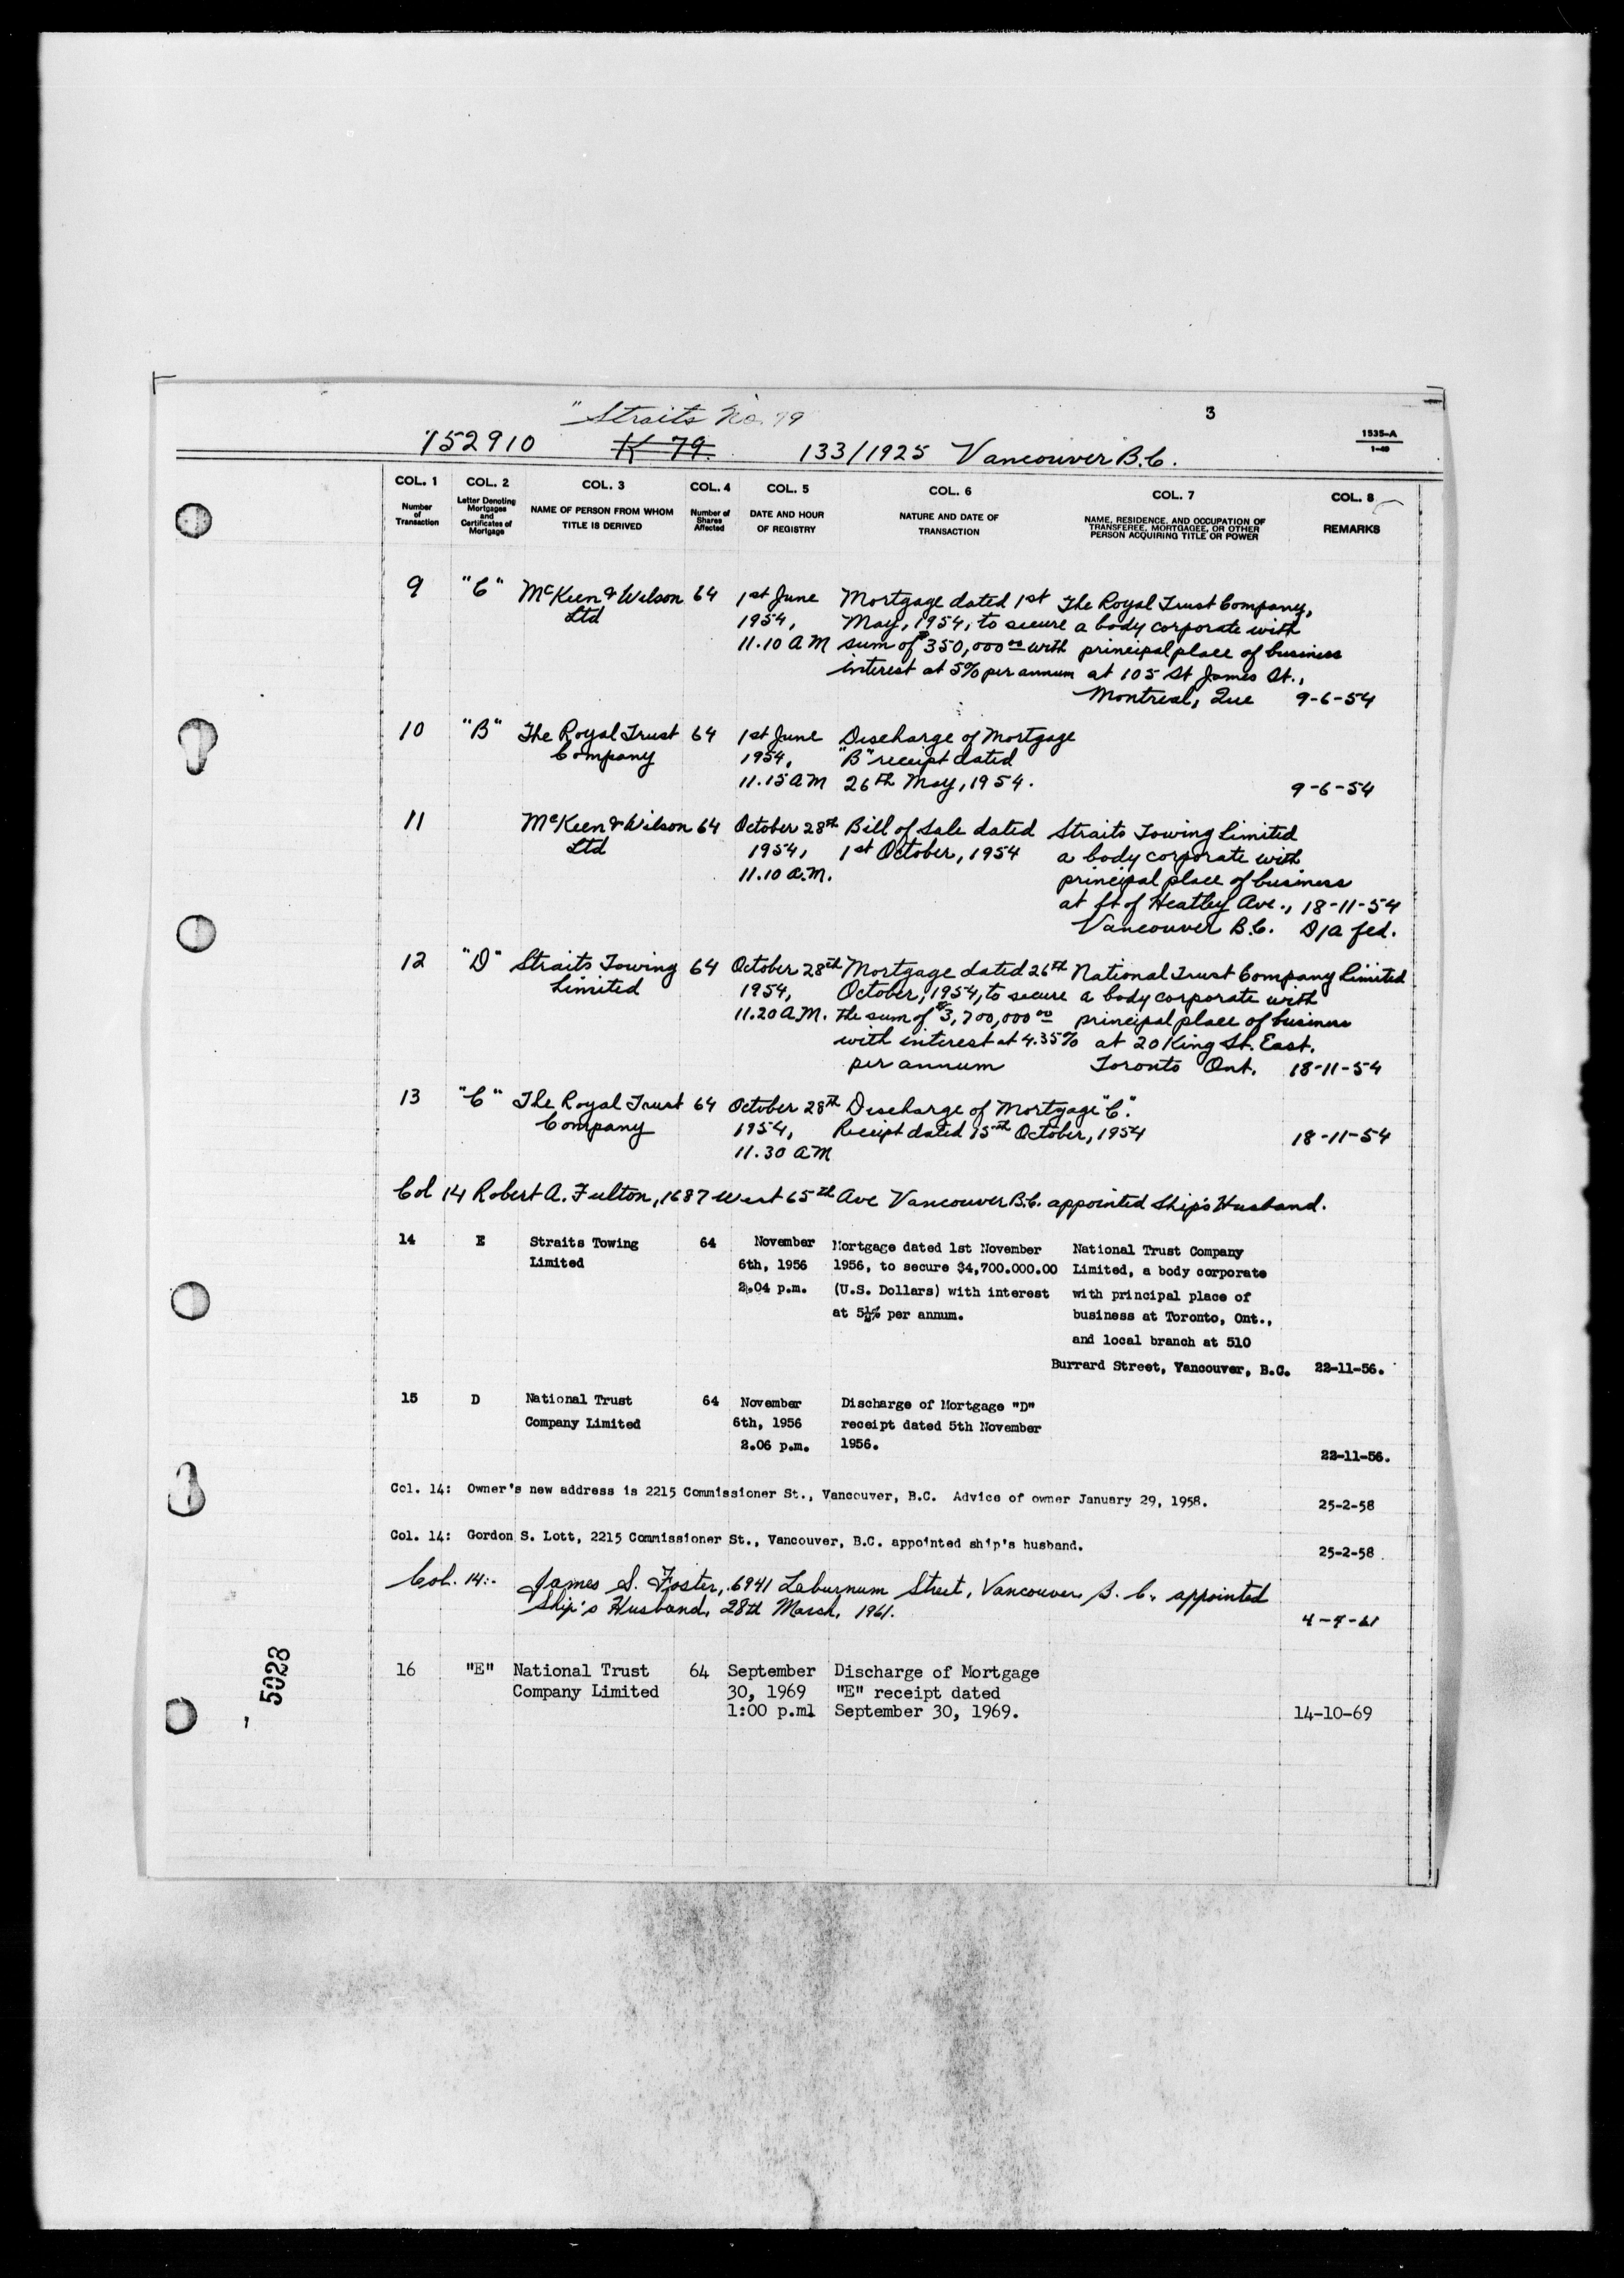 "Straits No. 79
3
152910 K 79. 133/1925 Vancouver B.C.
1535-A
1-49
COL. 1 COL. 2 COL. 3 COL. 4 COL. 5 COL. 6 COL. 7 COL. 8
Number of Transaction
Letter Denoting Mortgages and Certificates of Mortgage
NAME OF PERSON FROM WHOM TITLE IS DERIVED
Number of Shares Affected
DATE AND HOUR OF REGISTRY
NATURE AND DATE OF TRANSACTION
NAME, RESIDENCE, AND OCCUPATION OF TRANSFEREE, MORTGAGEE, OR OTHER PERSON ACQUIRING TITLE OR POWER
REMARKS
9 "C" McKeen & Wilson 64 1st June Mortgage dated 1st The Royal Trust Company,
Ltd 1954, May, 1954, to secure a body corporate with
11.10 AM sum of $350,000 00 with principal place of business
interest at 5% per annum at 105 St James St.,
Montreal, Que 9-6-54
10 "B" The Royal Trust 64 1st June Discharge of Mortgage
Company 1954, "B" receipt dated
11.15 AM 26th May, 1954.
9-6-54
11 McKeen & Wilson 64 October 28th Bill of Sale dated Straits Towing Limited
Ltd 1954, 1st October, 1954 a body corporate with
11.10 A.M. principal place of business
at ft of Heatley Ave., 18-11-54
Vancouver B.C. D/a fed.
12 "D" Straits Towing 64 October 28th Mortgage dated 26th National Trust Company Limited
Limited 1954, October, 1954, to secure a body corporate with
11.20 A.M. the sum of $3,700,000 00 principal place of business
with interest at 4.35% at 20 King St. East.
per annum Toronto Ont. 18-11-54
13 "C" The Royal Trust 64 October 28th Discharge of Mortgage "C".
Company 1954, Receipt dated 15th October, 1954 18-11-54
11.30 AM
Col 14 Robert A. Fulton, 1687 West 65th Ave Vancouver B.C. appointed Ship's Husband.
14 E Straits Towing 64 November Mortgage dated 1st November National Trust Company
Limited 6th, 1956 1956, to secure $4,700.000.00 Limited, a body corporate
2.04 p.m. (U.S. Dollars) with interest with principal place of
at 5½% per annum. business at Toronto, Ont.,
and local branch at 510
Burrard Street, Vancouver, B.C. 22-11-56.
15 D National Trust 64 November Discharge of Mortgage "D"
Company Limited 6th, 1956 receipt dated 5th November
2.06 p.m. 1956.
22-11-56.
Col. 14: Owner's new address is 2215 Commissioner St., Vancouver, B.C. Advice of owner January 29, 1958.
25-2-58
Col. 14: Gordon S. Lott, 2215 Commissioner St., Vancouver, B.C. appointed ship's husband.
25-2-58
Col. 14:- James S. Foster, 6941 Laburnum Street, Vancouver B.C. appointed
Ship's Husband, 28th March, 1961.
4-4-61
16 "E" National Trust 64 September Discharge of Mortgage
Company Limited 30, 1969 "E" receipt dated
1:00 p.ml September 30, 1969. 14-10-69
5028